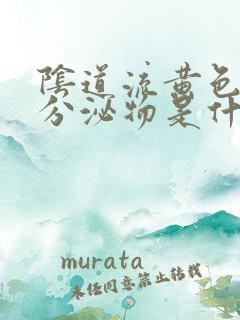 陰道流黄色
分泌物是什
murata
未经同意禁止转载